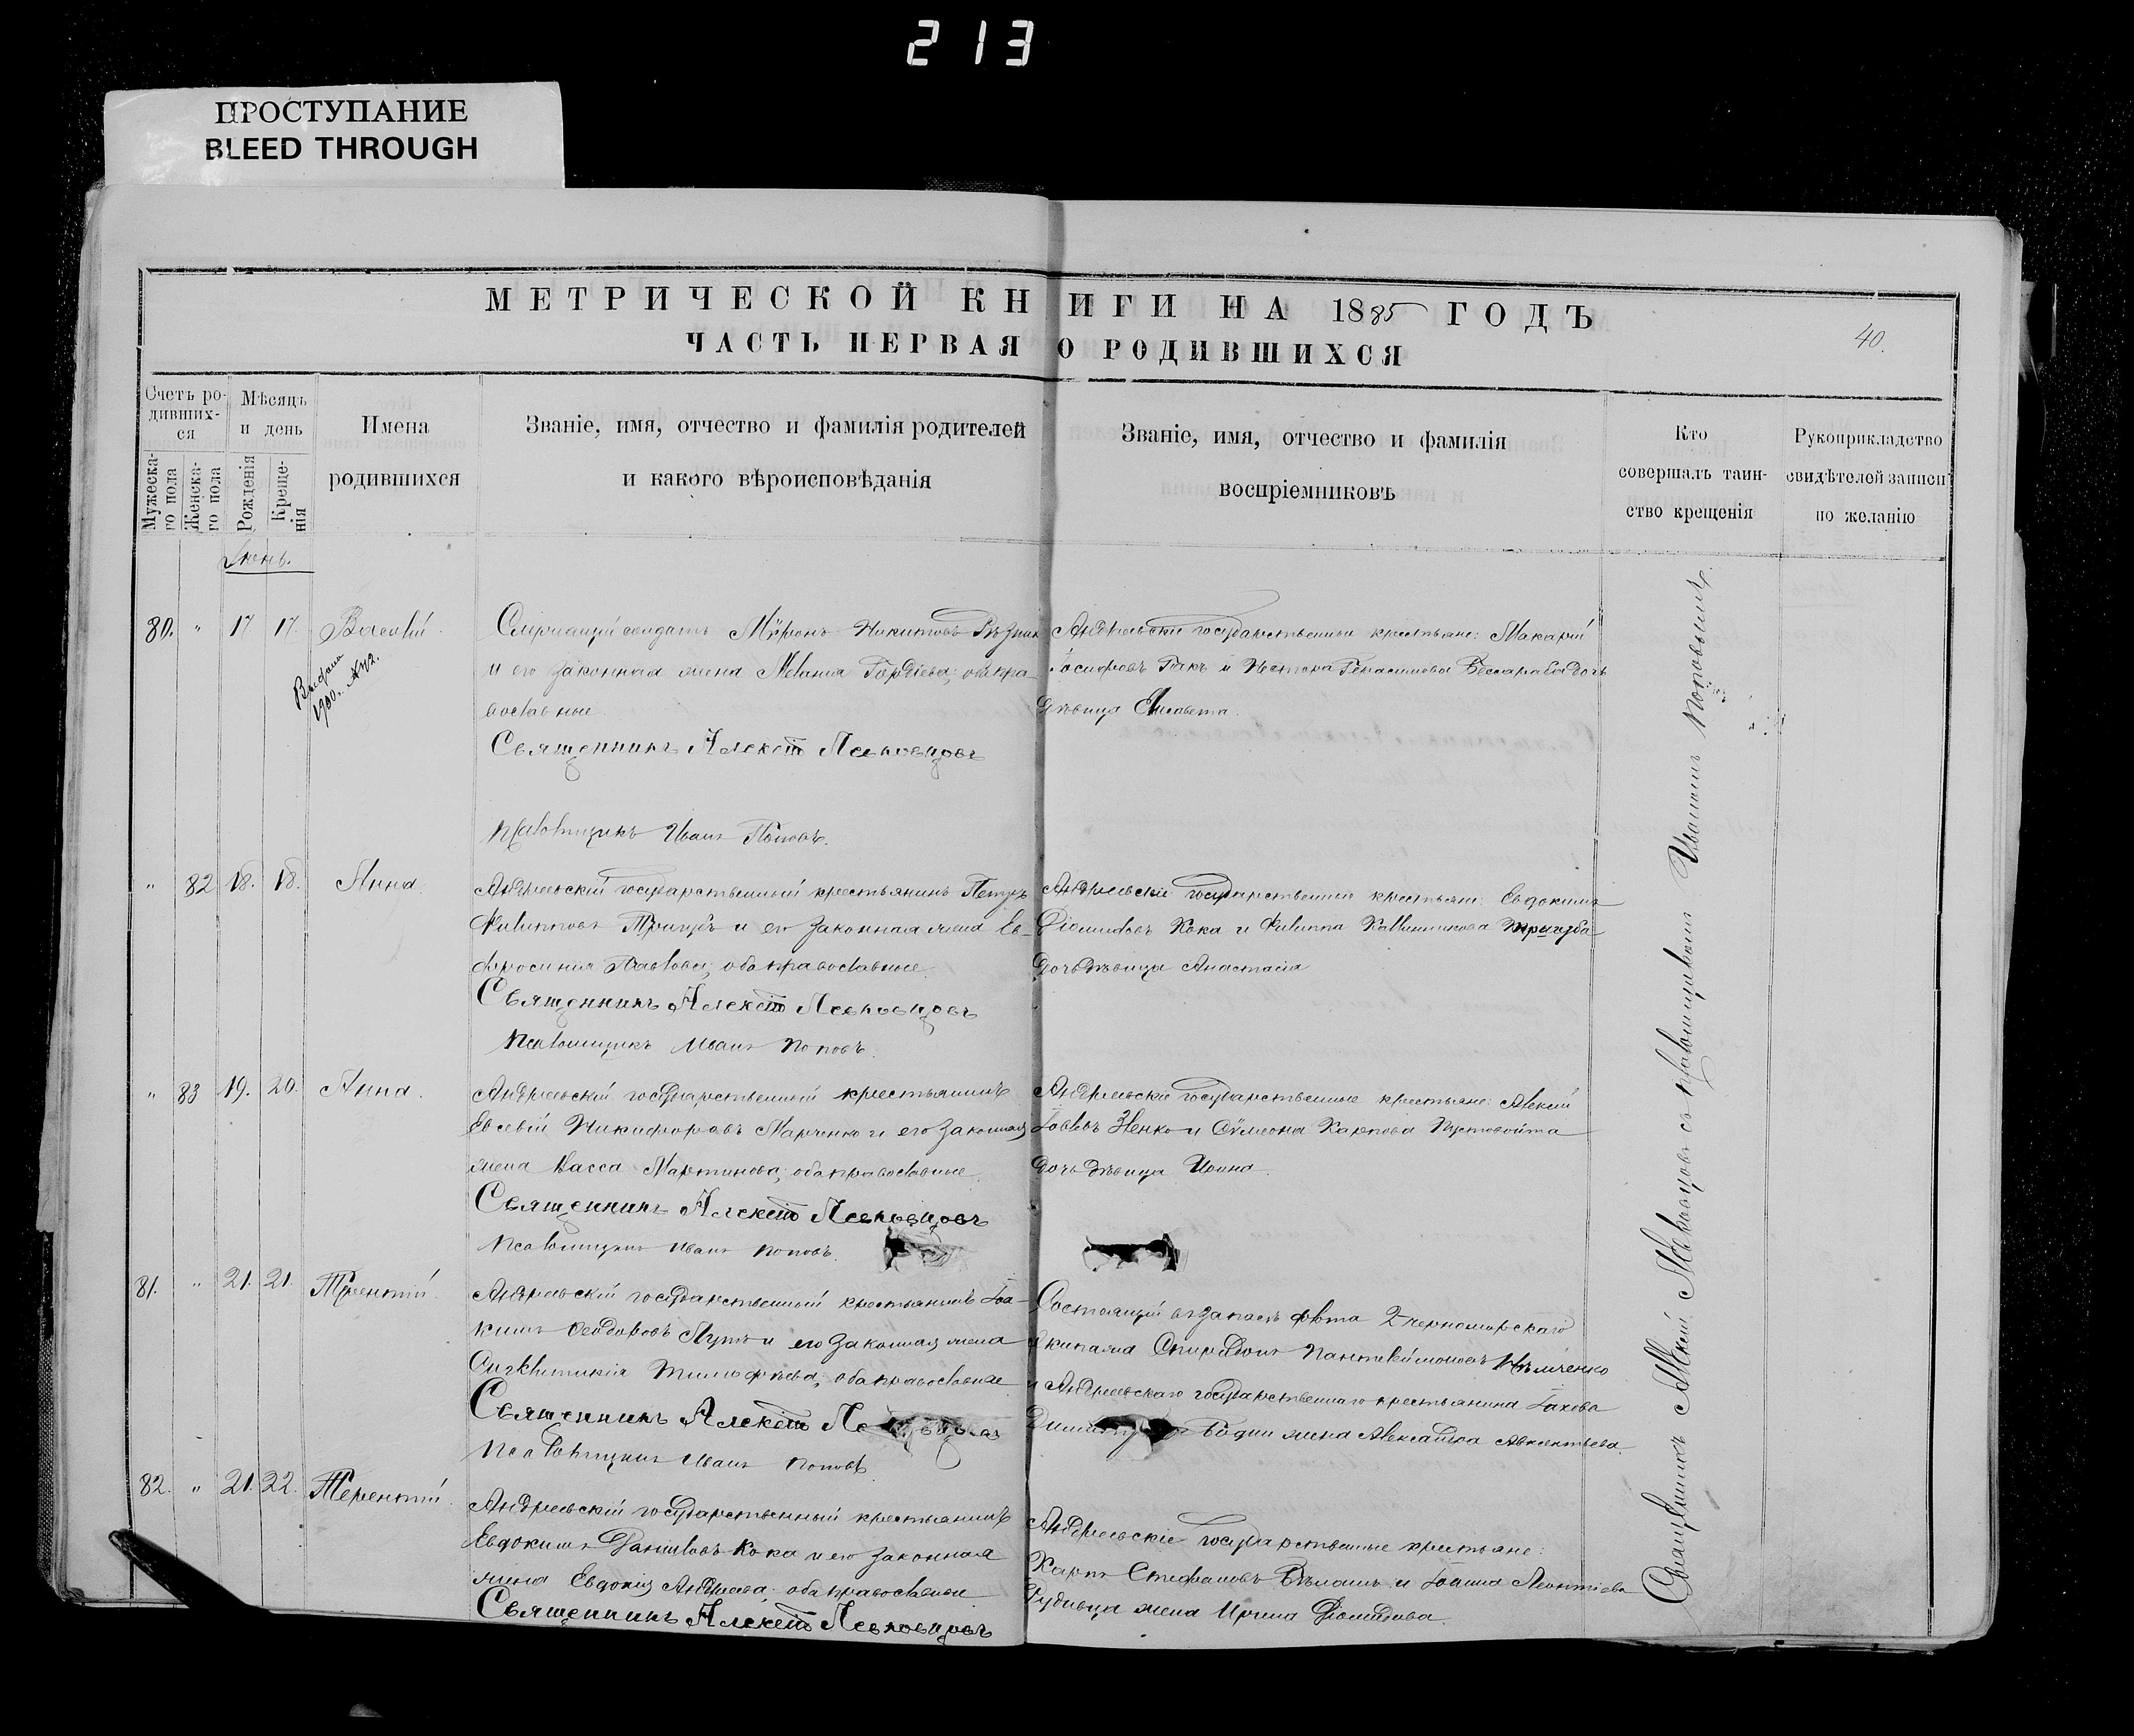 213
ПРОСТУПАНИЕ
BLEED THROUGH
МЕТРИЧЕСКОЙ КНИГИ НА 1885 ГОДЪ
40.
ЧАСТЬ ПЕРВАЯ О РОДИВШИХСЯ
Счетъ ро-
дивших-
ся
Мужеска-
го пола
Женска-
го пола
Мѣсяцъ
и день
Рожденія
Креще-
нія
Имена
родившихся
Званіе, имя, отчество и фамилія родителей
и какого вѣроисповѣданія
Званіе, имя, отчество и фамилія
воспріемниковъ
Кто
совершалъ таин-
ство крещенія
Рукоприкладство
свидѣтелей записи
по желанію
Іюнь.
80. " 17 17. Василій.
Выдана
1900. №42.
Служащій солдатъ Мѵронъ Никитовъ Рѣзник
и его законная жена Меланія Гордіева; оба пра-
вославные.
Священникъ Алексій Левковцовъ
Псаломщикъ Иванъ Поповъ.
Андреевскіе государственные крестьяне: Макарій
Іосифовъ Гакъ и Нестора Герасимова Бессараба дочь
дѣвица Елисавета.
" 82 18. 18. Анна.
Андреевскій государственный крестьянинъ Петръ
Филипповъ и его законная жена Ев-
фросинія Павлова; оба православные.
Священникъ Алексій Левковцовъ
Псаломщикъ Иванъ Поповъ.
Андреевскіе государственные крестьяне: Евдокимъ
Даниловъ Кока и Филиппа Каллиникова
дочь дѣвица Анастасія
" 83 19. 20. Анна.
Андреевскій государственный крестьянинъ
Евсевій Никифоровъ Марченко и его законная
жена Васса Мартинова; оба православные.
Священникъ Алексій Левковцовъ
Псаломщикъ Иванъ Поповъ.
Андреевскіе государственные крестьяне: Алексій
Іовлевъ Зенко и Сѵмеона Карпова Пустовойта
дочь дѣвица Ирина.
81. " 21. 21. Терентій.
Андреевскій государственный крестьянинъ Іоа-
кимъ Ѳеодоровъ Луть и его законная жена
Сигклитикія Тимофѣева; оба православные
Священникъ Алексій
Псаломщикъ Иванъ Поповъ.
Состоящій въ запасѣ флота 2 черноморскаго
экипажа Спиридонъ Пантелеймоновъ Нѣмченко
и Андреевскаго государственнаго крестьянина Іакова
жена Александра
82. " 21. 22. Терентій.
Андреевскій государственный крестьянинъ
Евдокимъ Даниловъ Кока и его законная
жена Евдокія Андреева; оба православные
Священникъ Алексій Левковцовъ
Андреевскіе государственные крестьяне:
Карпъ Стефановъ Бѣлашъ и Іоанна Леонтіева
жена Ирина
Священникъ Алексій Левковцовъ съ псаломщикомъ Иваномъ Поповымъ.